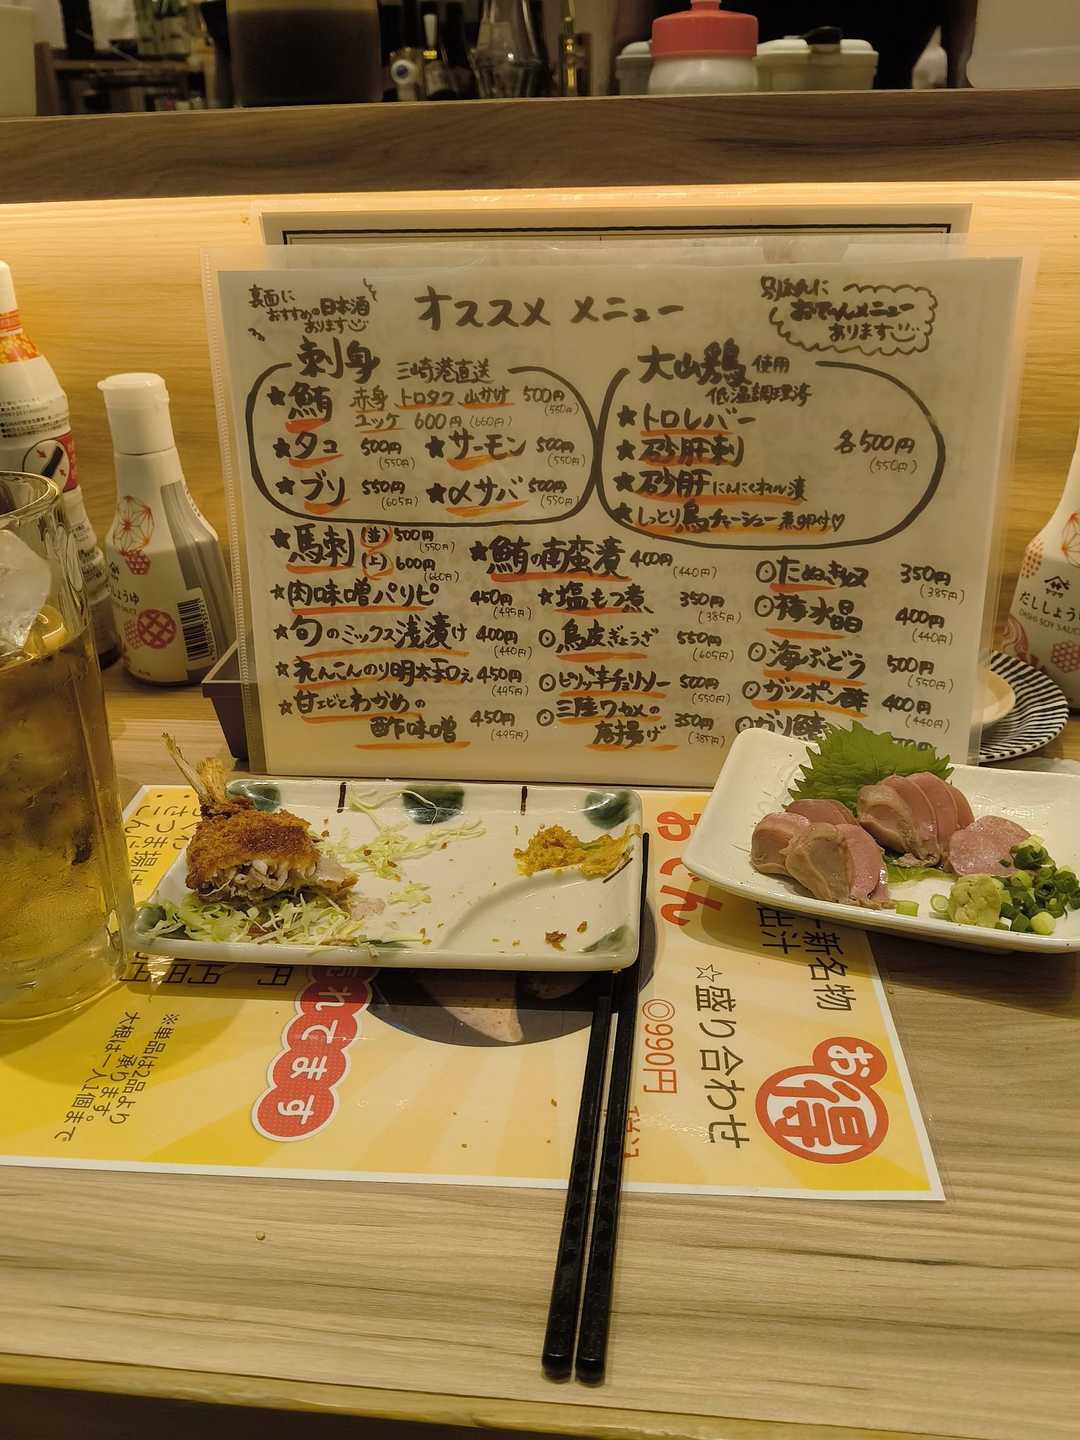 裏面に
おすすめの日本酒
あります
オススメ メニュー
別紙に
おでんメニュー
あります
刺身 三崎港直送
★鮪 赤身 トロタク 山かけ 500円 (550円)
ユッケ 600円 (660円)
★タコ 500円 (550円) ★サーモン 500円 (550円)
★ブリ 550円 (605円) ★〆サバ 500円 (550円)
大山鶏 使用
低温調理済
★トロレバー
★砂肝刺 各500円 (550円)
★砂肝にんにくオイル漬
★しっとり鳥チャーシュー 煮卵付♡
★馬刺 (並) 500円 (550円)
(上) 600円 (660円)
★肉味噌パリピ 450円 (495円)
★旬のミックス浅漬け 400円 (440円)
★れんこんのり明太和え 450円 (495円)
★甘エビとわかめの
酢味噌 450円 (495円)
★鮪の南蛮漬 400円 (440円)
★塩もつ煮 350円 (385円)
◎鳥皮ぎょうざ 550円 (605円)
◎ピリッ辛チョリソー 500円 (550円)
◎三陸ワカメの
唐揚げ 350円 (385円)
◎たぬき奴 350円 (385円)
◎梅水晶 400円 (440円)
◎海ぶどう 500円 (550円)
◎ガツポン酢 400円 (440円)
◎ガリ鯖
だししょうゆ
DASHI SOY SAUCE
おでん
新名物
出汁
☆盛り合わせ
◎990円
お得
売れてます
※単品は2品より
承ります。
大根は一人1個まで